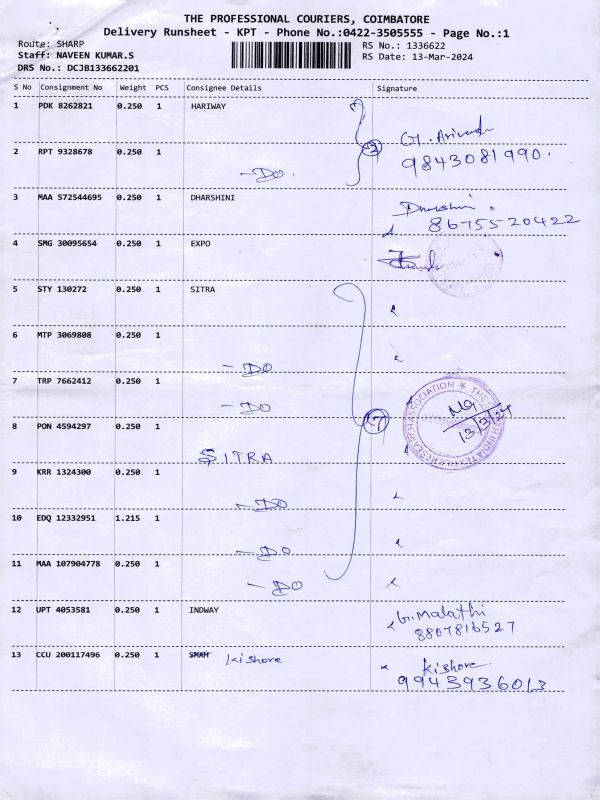 THE PROFESSIONAL COURIERS, COIMBATORE
Delivery Runsheet - KPT - Phone No.:0422-3505555 - Page No.:1
Route: SHARP
Staff: NAVEEN KUMAR.S
DRS No.: DCJB133662201
RS No.: 1336622
RS Date: 13-Mar-2024
S No Consignment No Weight PCS Consignee Details Signature
1 PDK 8262821 0.250 1 HARIWAY
2 RPT 9328678 0.250 1 -Do.
2 G. Arivudh
9843081990.
3 MAA 572544695 0.250 1 DHARSHINI Dharshini.
8675520422
4 SMG 30095654 0.250 1 EXPO
5 STY 130272 0.250 1 SITRA
6 MTP 3069808 0.250 1 -DO
7 TRP 7662412 0.250 1 -DO
8 PON 4594297 0.250 1 SITRA
7
13/3/24
RESEARCH ASSOCIATION * THE
9 KRR 1324300 0.250 1 -DO
10 EDQ 12332951 1.215 1 -DO
11 MAA 107904778 0.250 1 -DO
12 UPT 4053581 0.250 1 INDWAY G. Malathi
8807816527
13 CCU 200117496 0.250 1 Kishore Kishore
9943936013